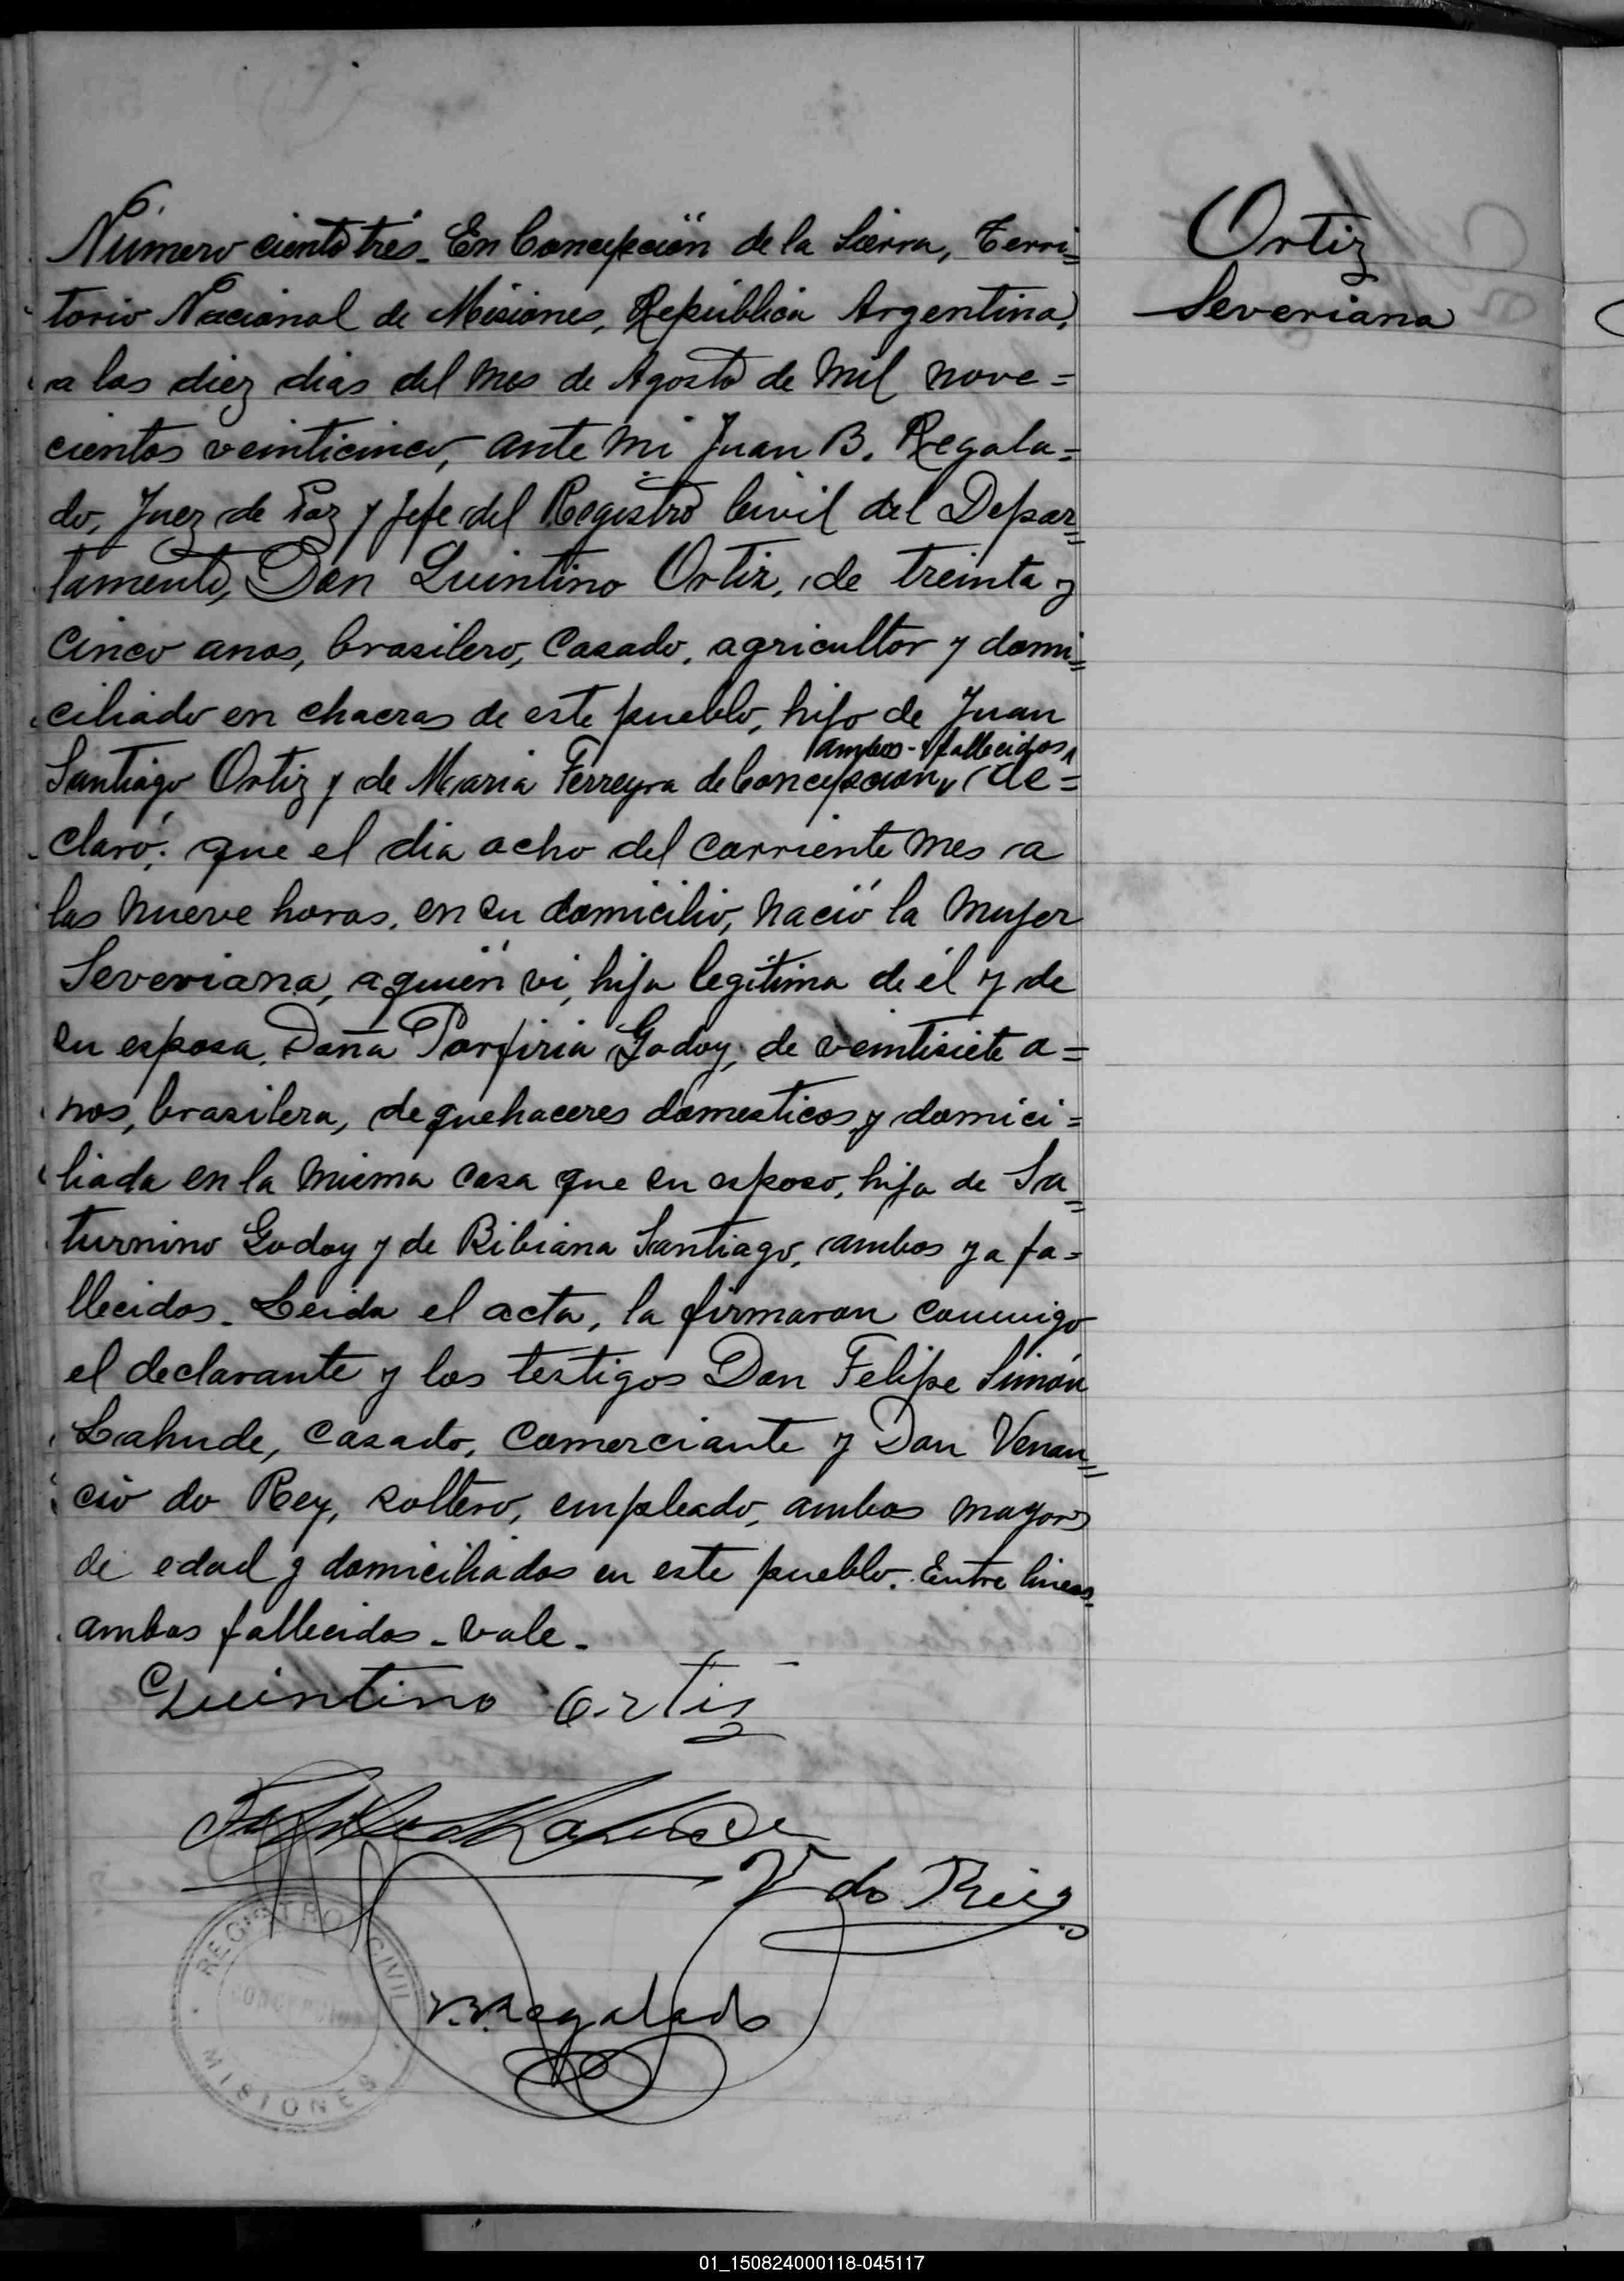 Número ciento trés. En Concepción de la Sierra, Terri=
torio Nacional de Misiones, República Argentina,
a los diez dias del mes de Agosto de mil nove=
cientos veinticinco, ante mi Juan B. Regala=
do, Juez de Paz y Jefe del Registro Civil del Depar=
tamento, Don Quintino Ortiz, de treinta y
cinco anos, brasilero, casado, agricultor y domi=
ciliado en chacras de este pueblo, hijo de Juan
ambos fallecidos
Santiago Ortiz y de Maria Ferreyra de Concepcion, de=
claró: que el dia ocho del corriente mes a
las nueve horas, en su domicilio, nació la mujer
Severiana, a quién vi, hija legítima de él y de
su esposa, Doña Porfiria Godoy, de veintisiete a=
nos, brasilera, de quehaceres domesticos y domici=
liada en la misma casa que su esposo, hija de Sa=
turnino Godoy y de Bibiana Santiago, ambos ya fa=
llecidos. Leida el acta, la firmaron conmigo
el declarante y los testigos Don Felipe Simón
Lahude, casado, comerciante y Don Venan=
cio do Rey, soltero, empleado, ambos mayores
de edad y domiciliados en este pueblo. Entre lineas.
ambos fallecidos. vale.
Ortiz
Severiana
Quintino Ortiz
V do Rey
J.B. Regalado
REGISTRO CIVIL
CONCEPCION
MISIONES
01_150824000118-045117